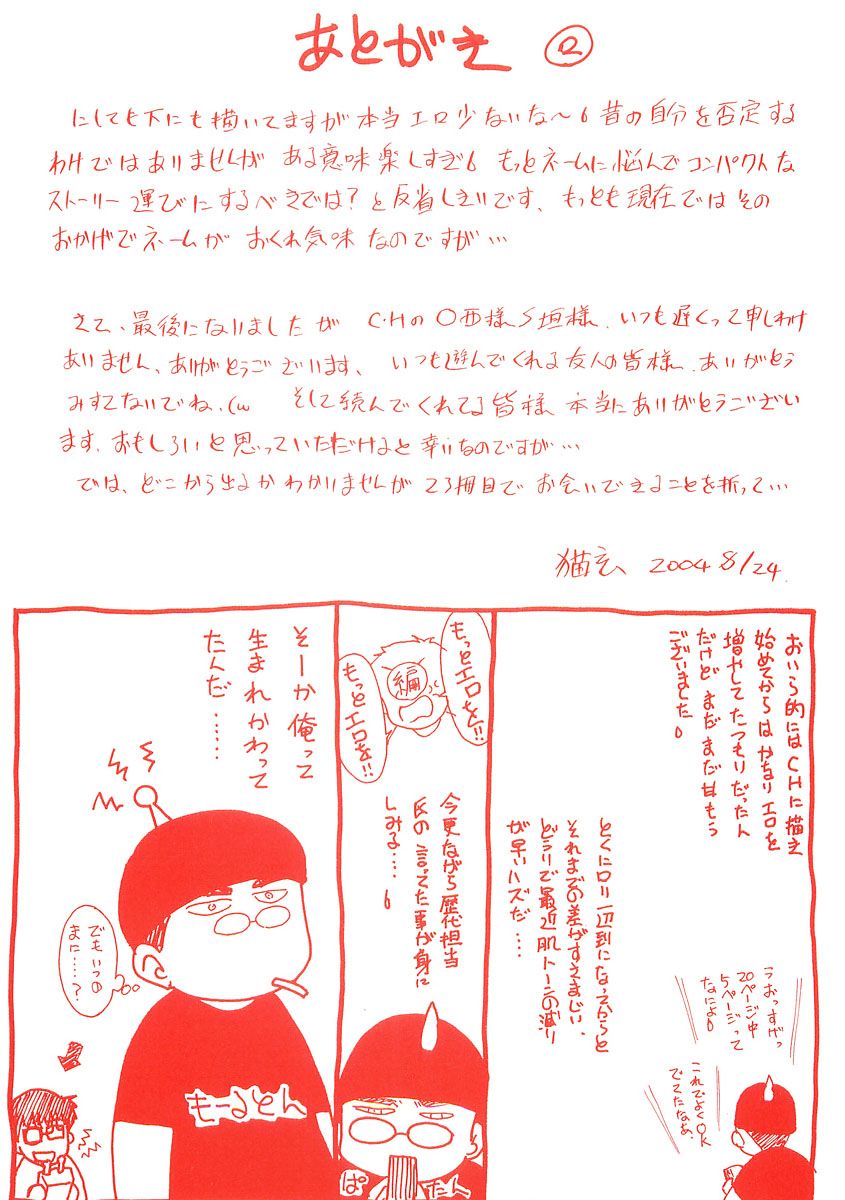 あとがき ②
にしても下にも描いてますが本当エロ少ないな〜 昔の自分を否定する
わけではありませんが ある意味楽しすぎ もっとネームに悩んでコンパクトな
ストーリー運びにするべきでは?と反省しきりです、もっとも現在ではその
おかげでネームが おくれ気味なのですが…
さて、最後になりましたが C・Hの〇西様S垣様、いつも遅くって申しわけ
ありません、ありがとうございます、いつも遊んでくれる友人の皆様、ありがとう
みすてないでね、(w そして読んでくれてる皆様 本当にありがとうござい
ます、おもしろいと思っていただけると幸いなのですが…
では、どこから出るかわかりませんが 23冊目で お会いできることを祈って…
猫玄 2004 8/24.
おいら的にはCHに描き
始めてからは かなりエロを
増やしてたつもりだったん
だけど まだまだ甘もう
ございました
うおっすげっ
20ページ中
5ページって
なによ
これでよくOK
でてたなあ、
とくにロリ一辺到になってからと
それまでの差がすさまじい、
どうりで最近肌トーンの減り
が早いハズだ…
もっとエロを!!
編
もっとエロを!!
今更ながら歴代担当
氏の言ってた事が身に
しみる……
ぱたん
そーか俺って
生まれかわって
たんだ……
でもいつの
まに……?
もーるとん